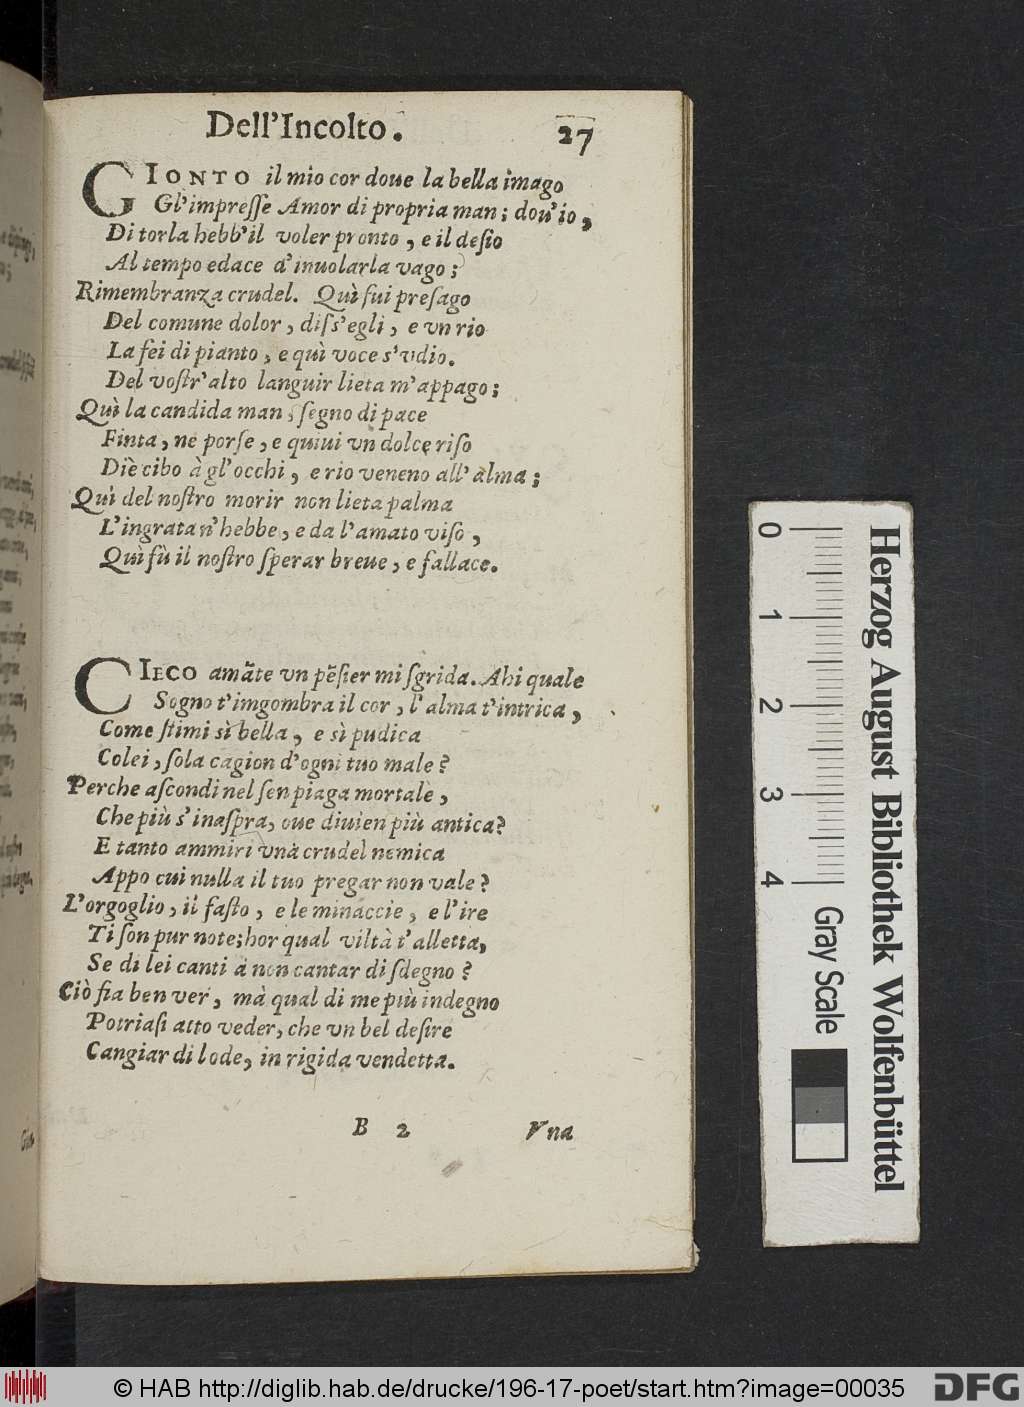 Dell'Incolto. 27
GIONTO il mio cor doue la bella imago
Gl'impreſſe Amor di propria man; dou'io,
Di torla hebb'il voler pronto, e il deſio
Al tempo edace d'inuolarla vago;
Rimembranza crudel. Quì fui preſago
Del comune dolor, diſs'egli, e vn rio
La fei di pianto, e quì voce s'vdìo.
Del voſtr'alto languir lieta m'appago;
Quì la candida man, ſegno di pace
Finta, ne porſe, e quiui vn dolce riſo
Diè cibo à gl'occhi, e rio veneno all'alma;
Quì del noſtro morir non lieta palma
L'ingrata n'hebbe, e da l'amato viſo,
Quì fù il noſtro ſperar breue, e fallace.
CIECO amāte vn pēſier mi ſgrida. Ahi quale
Sogno t'imgombra il cor, l'alma t'intrica,
Come ſtimi sì bella, e sì pudica
Colei, ſola cagion d'ogni tuo male?
Perche aſcondi nel ſen piaga mortale,
Che più s'inaſpra, oue diuien più antica?
E tanto ammiri vna crudel nemica
Appo cui nulla il tuo pregar non vale?
L'orgoglio, il faſto, e le minaccie, e l'ire
Ti ſon pur note; hor qual viltà t'alletta,
Se di lei canti à non cantar di ſdegno?
Ciò fia ben ver, mà qual di me più indegno
Potriaſi atto veder, che vn bel deſire
Cangiar di lode, in rigida vendetta.
B 2 Vna
0 1 2 3 4
Gray Scale
Herzog August Bibliothek Wolfenbüttel
© HAB http://diglib.hab.de/drucke/196-17-poet/start.htm?image=00035
DFG